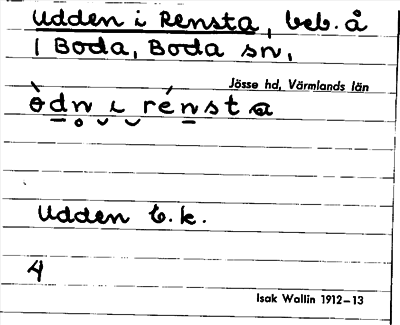 Udden i Rensta, beb. å
1 Boda, Boda sn,
Jösse hd, Värmlands län
ò̱dn̥ ι rénsta
Udden b.k.
4
Isak Wallin 1912–13